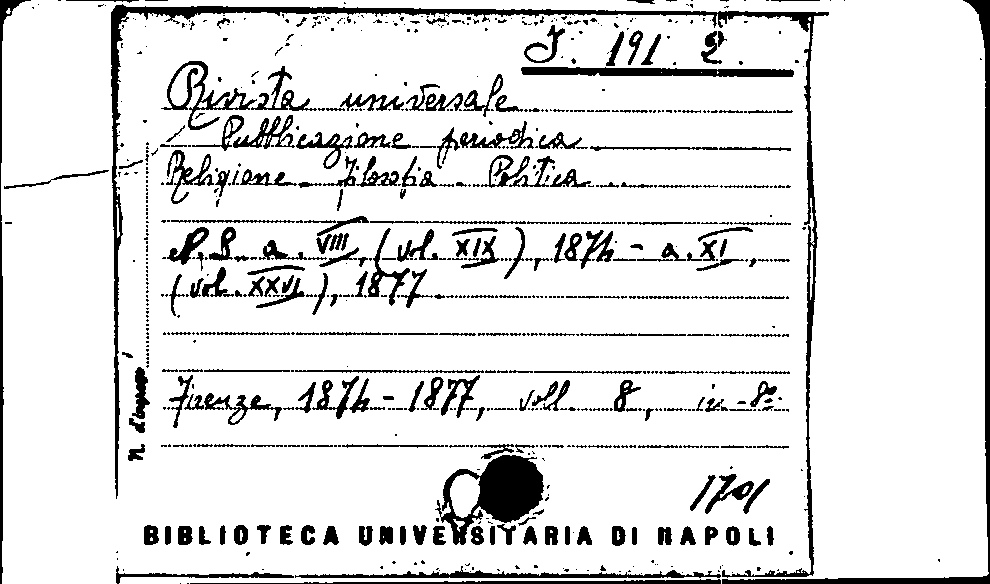 J. 191. 2.
Rivista universale
Pubblicazione periodica.
Religione - Filosofia - Politica ...
N. S. a. VIII, (vol. XIX), 1874 - a. XI,
(vol. XXVI), 1877.
Firenze, 1874 - 1877, voll. 8, in-8º
N. d'ingresso
1701
BIBLIOTECA UNIVERSITARIA DI NAPOLI